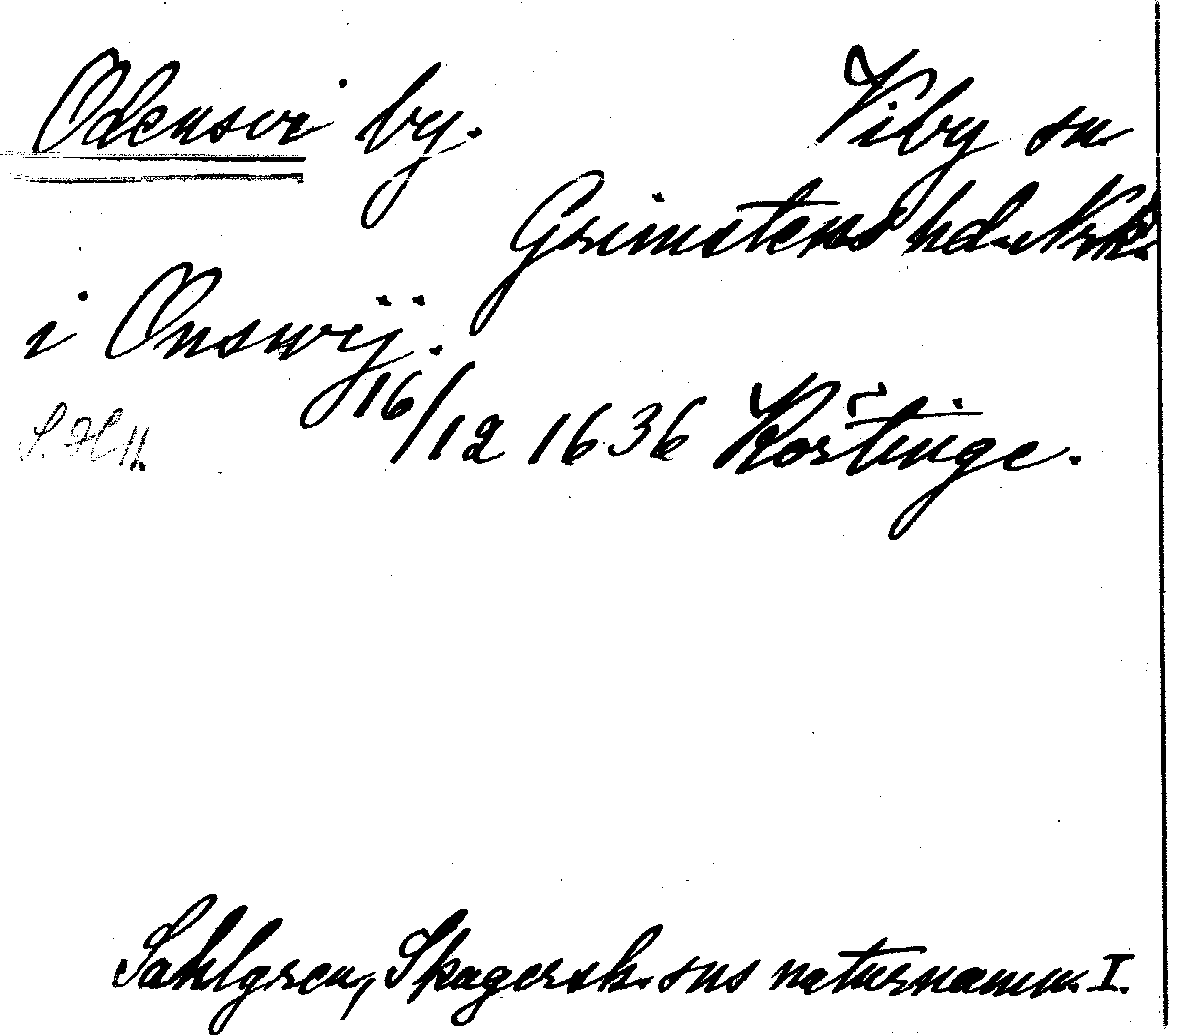 Odensvi by. Viby sn
Grimstens hd. Nrk.
i Onswij.
16/12 1636 Körtinge.
S. 74 11.
Sahlgren, Skagersh. sns naturnamn. I.